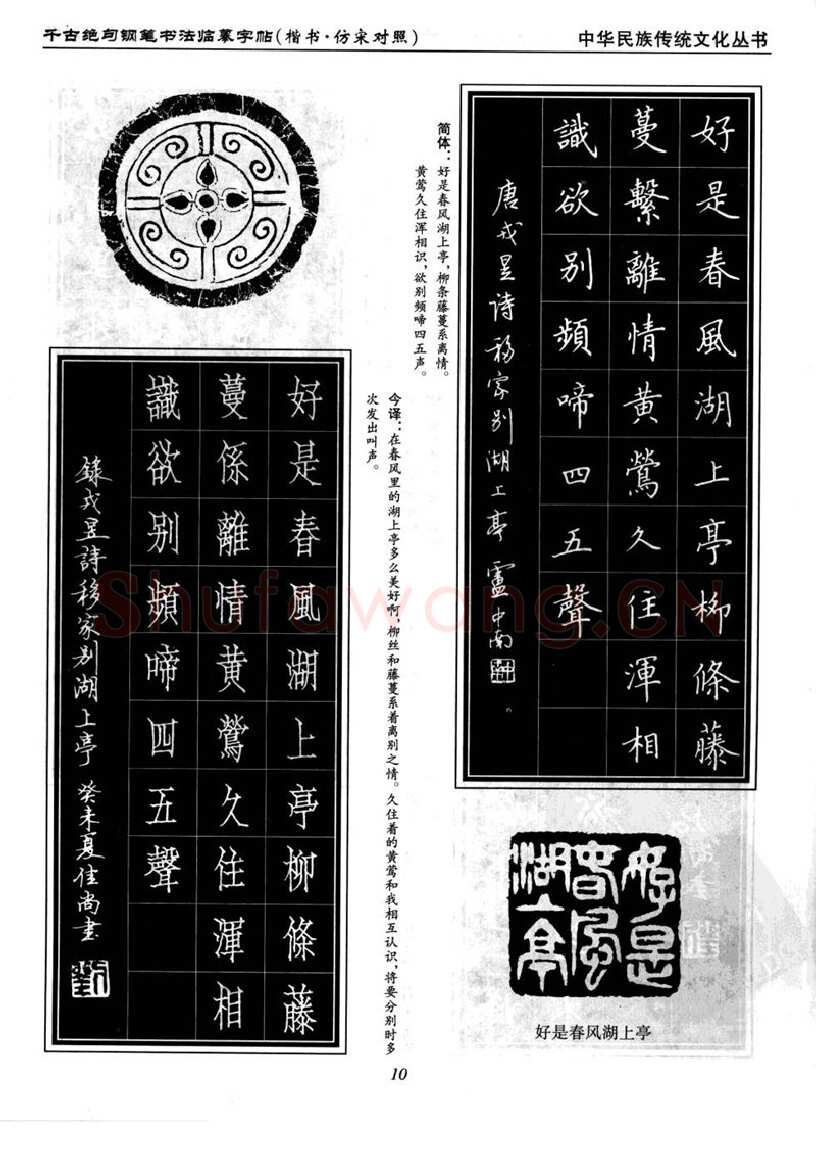 千古绝句钢笔书法临摹字帖(楷书·仿宋对照)
中华民族传统文化丛书
好是春風湖上亭柳條藤
蔓繫離情黄鶯久住渾相
識欲别頻啼四五聲
唐戎昱诗移家别湖上亭 盧中南
简体：好是春风湖上亭，柳条藤蔓系离情。
黄莺久住浑相识，欲别频啼四五声。
今译：在春风里的湖上亭多么美好啊，柳丝和藤蔓系着离别之情。久住着的黄莺和我相互认识，将要分别时多
次发出叫声。
好是春風湖上亭柳條藤
蔓係離情黄鶯久住渾相
識欲别頻啼四五聲
錄戎昱詩移家别湖上亭 癸未夏佳尚書
好是
春風
湖亭
好是春风湖上亭
10
Shufawang.CN